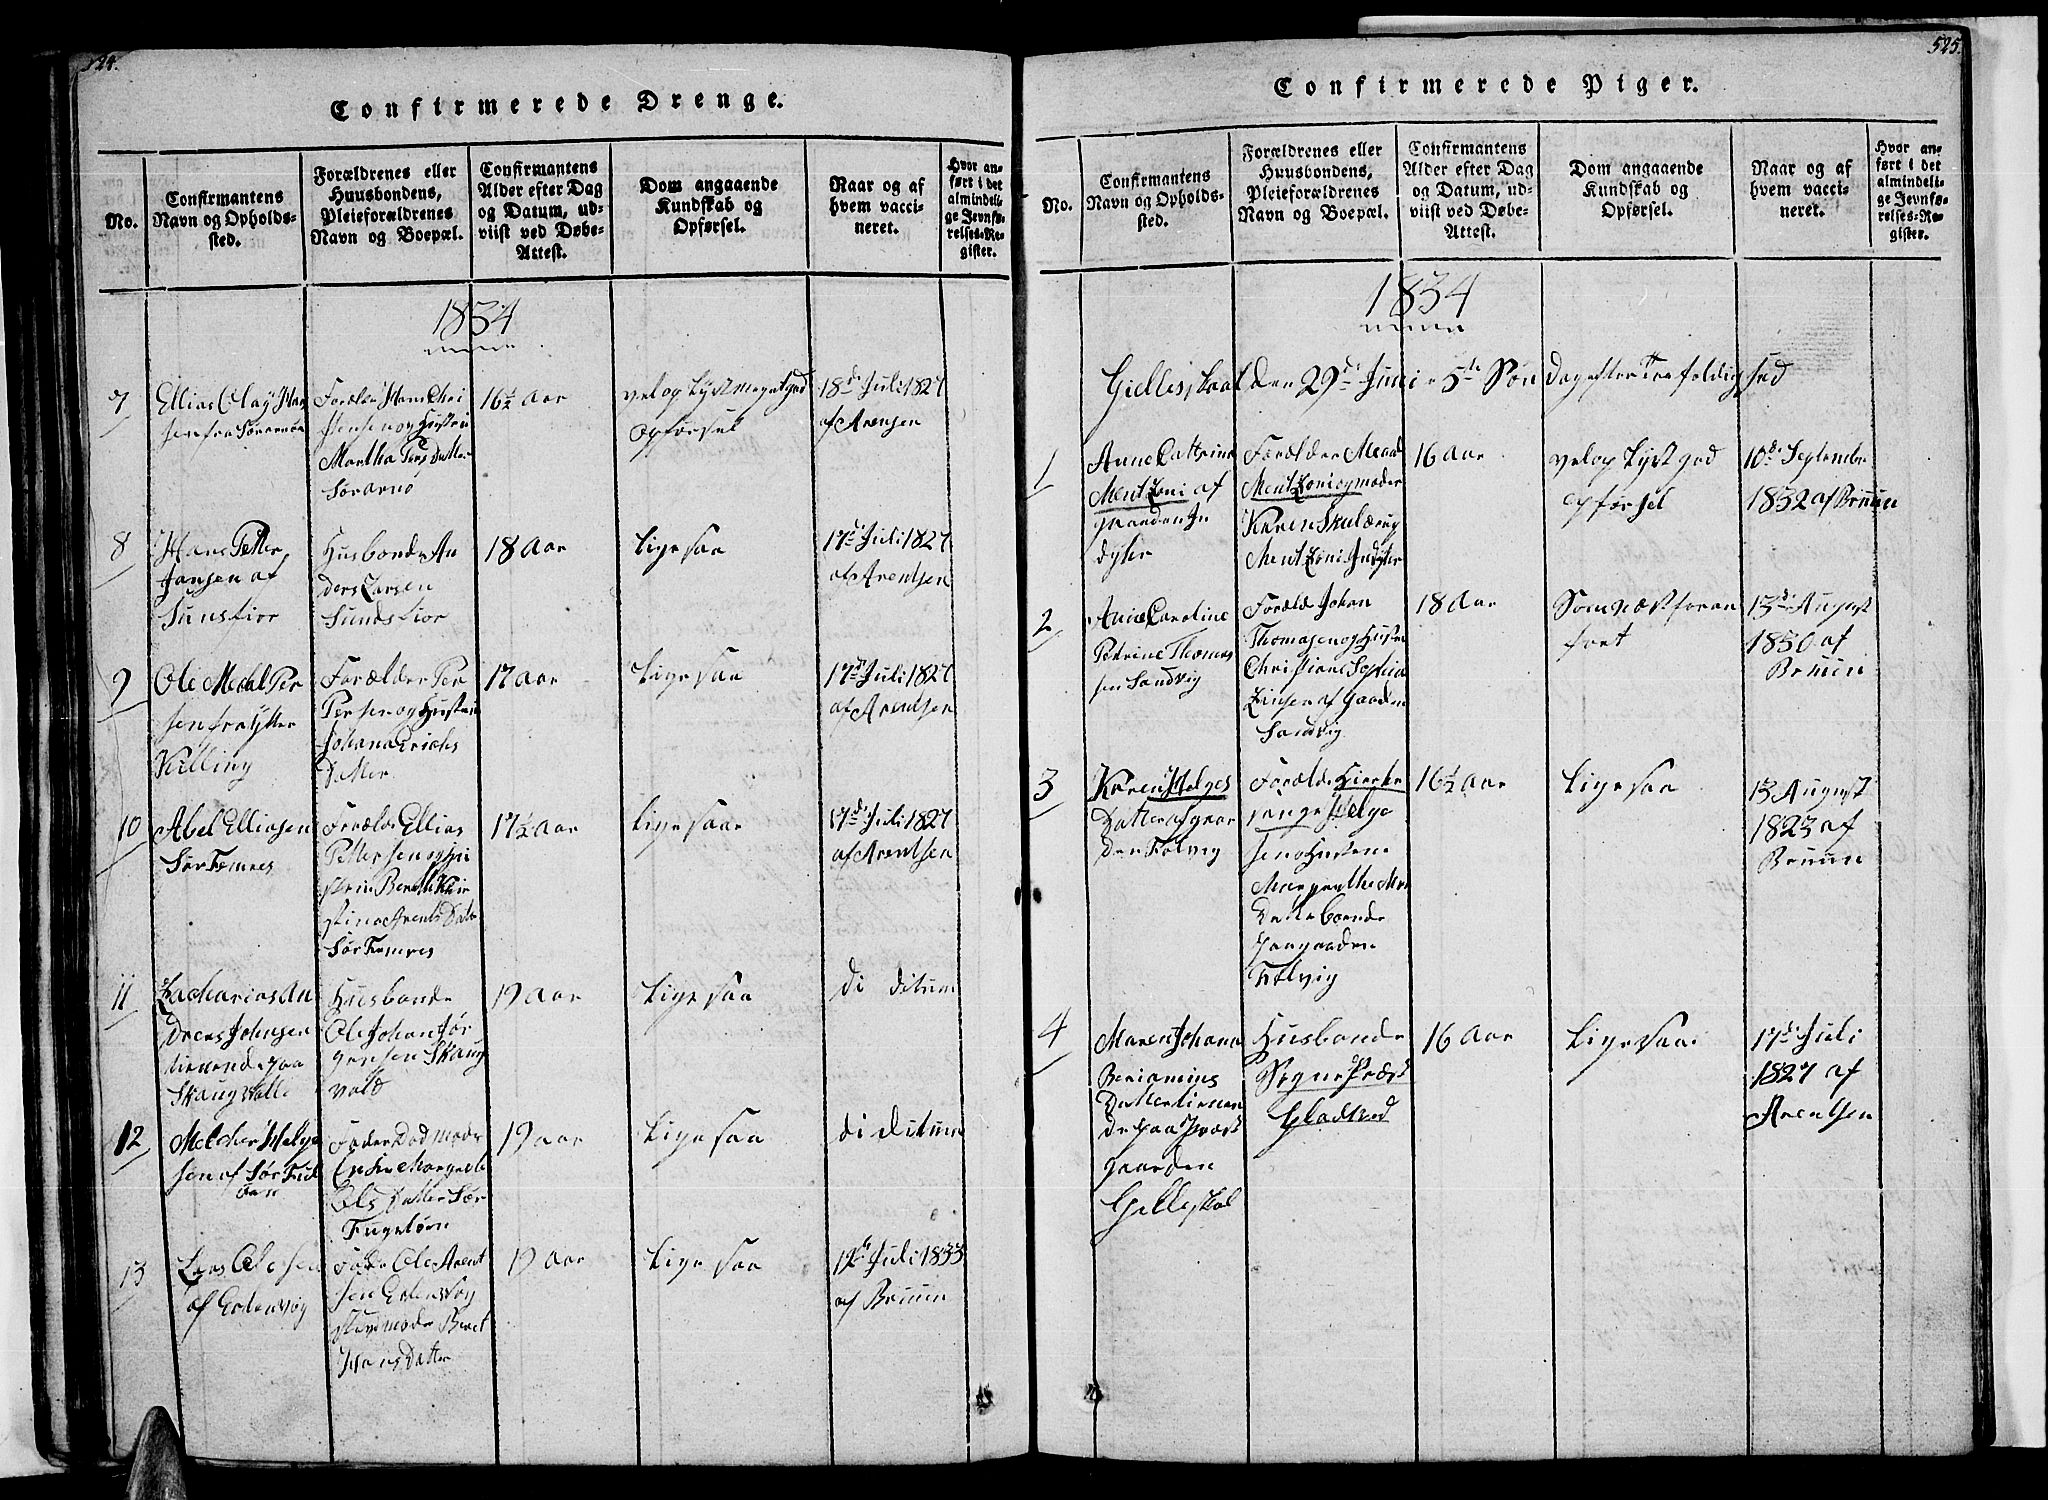 524.
Confirmerede Drenge.
No.
Confirmantens
Navn og Opholds-
sted.
Forældrenes eller
Huusbondens,
Pleieforældrenes
Navn og Boepæl.
Confirmantens
Alder efter Dag
og Datum, ud-
viist ved Døbe-
Attest.
Dom angaaende
Kundskab og
Opførsel.
Naar og af
hvem vacci-
neret.
Hvor an-
ført i det
almindeli-
ge Jevnfø-
relses-Re-
gister.
1834
7
Ellias Olay Han
sen fra Sørarnøe
Foræler Hans Chri
stensen og Hustru
Martha Pers Datter
Sørarnø
16½ Aar
vel og Lyst meget god
Opførsel
18de Juli 1827
af Arensen
8
Hans Petter
Jansen af
Sunsfior
Husbonde An
ders Larsen
Sundsfior
18 Aar
Ligesaa
17de Juli 1827
af Arentsen
9
Ole Medal Per
sen fra Ytter
Killing
Forælder Per
Persen og Hustru
Johana Erichs
Datter
17 Aar
Ligesaa
17de Juli 1827
af Arentsen
10
Abel Elliasen
Sør Femres
Foræler Ellias
Pettersen og Hu
strue Berethe Kir
stina Arents Dater
Sør Femres
17½ Aar
Ligesaa
17de Juli 1827
af Arentsen
11
Zacharias An
dreas Johnsen
tienende paa
Skaugvolle
Husbonde
Ole Johan Jør
gensen Skaug
vold
19 Aar
Ligesaa
di ditum
12
Melcher Helge
sen af Sør Fugl
øen
Fader Død Moder
Enke Margrete
Ols Datter Sør
Fugeløen
19 Aar
Ligesaa
di ditum
13
Lars Olesen
af Eidensvog
Fader Ole Arent
sen Edensvog
stivmoder Beret
Hans Datter
19 Aar
Ligesaa
12te Juli 1833
af Bruun
525.
Confirmerede Piger.
No.
Confirmantens
Navn og Opholds-
sted.
Forældrenes eller
Huusbondens,
Pleieforældrenes
Navn og Boepæl.
Confirmantens
Alder efter Dag
og Datum, ud-
viist ved Døbe-
Attest.
Dom angaaende
Kundskab og
Opførsel.
Naar og af
hvem vacci-
neret.
Hvor an-
ført i det
almindeli-
ge Jevnfø-
relses-Re-
gister.
1834
Gielleskaal den 29de Juni 5te Søn Dag efter Trefoldighed
1
Anne Cattrina
MentZoni af
gaarden In
dyer
Forælder
MentZoni og moder
Karen Skulderug
MentZoni Indyer
16 Aar
vel og Lyst god
opførsel
10de September
1832 af Bruun
2
Ane Caroline
Petrine Thomas
sen Sandvig
Foræld Johan
Thomasen og Hustru
Christiane Sophia
Zinsen af Gaarden
Sandvig
18 Aar
Som næst foran
ført
13de August
1830 af
Bruun
3
Karen Helges
Datter af gaar
den Følvig
Foræld Kierke
sanger Helge
sen og Hustrue
Margrethe
Datter boende
paa gaarden
Følvig
16½ Aar
Ligesaa
13 August
1823 af
Bruun
4
Maren Johana
Beniamins
Datter tienen
de paa Præst
gaarden
Gilleskol
Husbonde
Sogne Præst
Gladtved
16 Aar
Ligesaa
17de Juli
1827 af
Arentsen